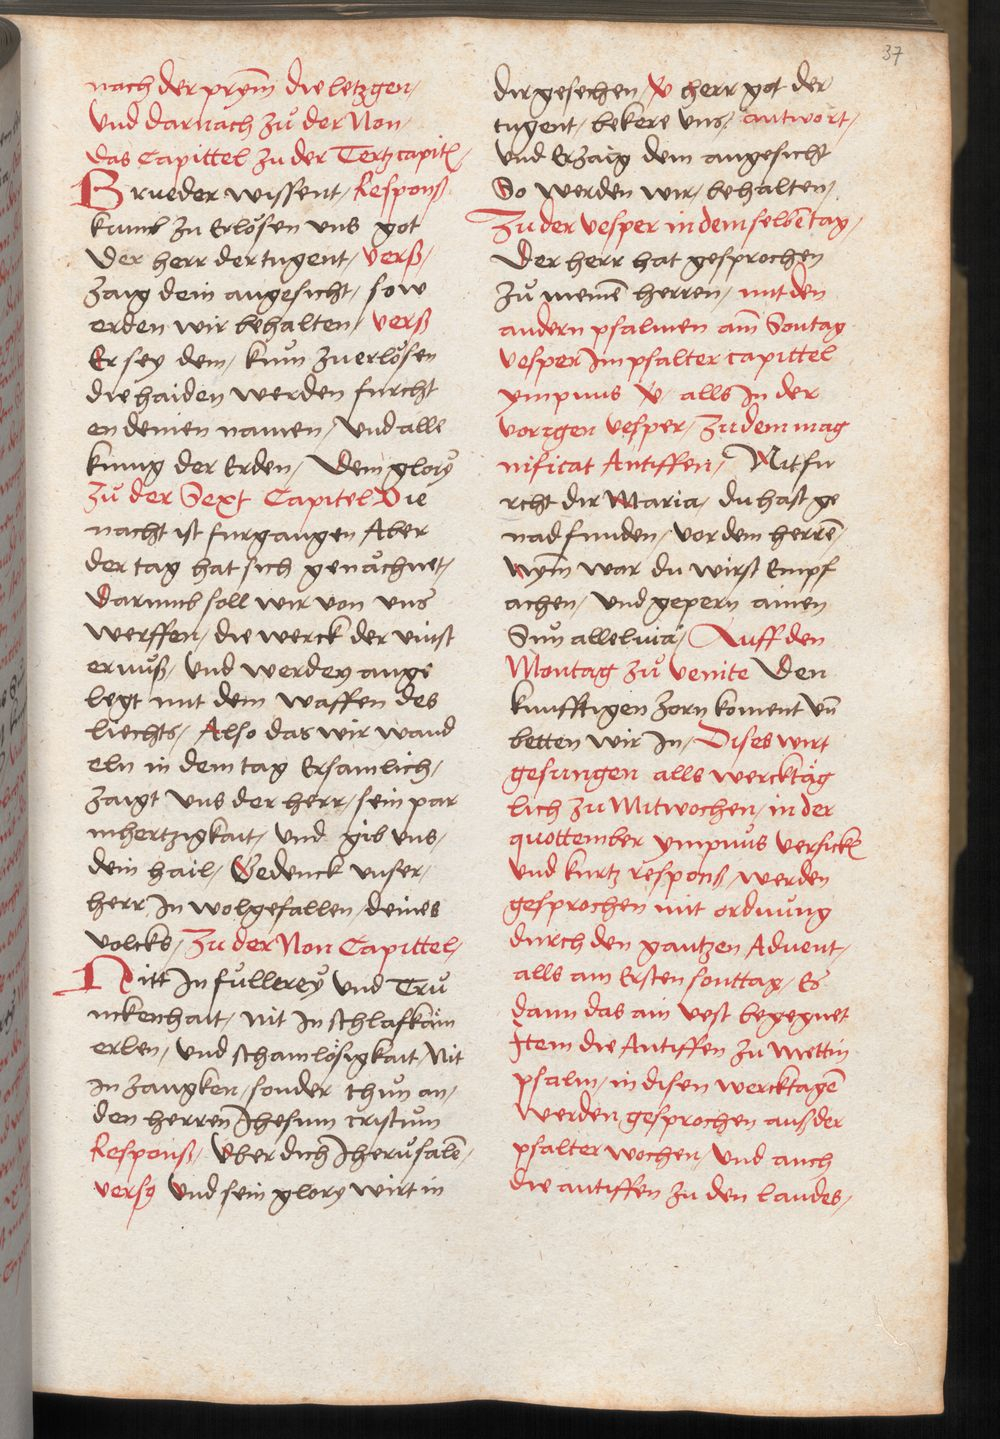 37
nach der prÿm̄ die letzgen,
Und darnach zů der Non,
das Capittel zu der Tertz capitl,
Brueder wissent, Respons
kumb zu Erlösen uns got
der herr der tugent, verß,
zaig dein angesicht, so w
erden wir behalten, verß
Er sey dem, kum zu erlösen
die haiden werden furcht
en deinen namen, Und alle
kunig der Erden, dein glorÿ
Zů der Sext Capitel Die
nacht ist furgangen Aber
der tag hat sich genåchnet,
darumb soll wir von uns
werffen, die werck der vinst
ernuß, und werden ange
legt mit dem waffen des
liechts, Also das wir wand
eln in dem tag Ersamlich,
zaigt uns der herr, sein par
mhertzigkait, und gib uns,
dein hail, Gedenck unser,
herr In wolgefallen, deines
volcks, Zu der Non Capittel,
Nitt In füllereÿ Und Tru
nckenhait, nit in schlafkäm
erlen, und schamlösigkait Nit
in zangken, sonder thun an,
den herren Jhesum cristum
Respons, Vber dich Jherusalē,
vers Und sein glory wirt in
dir gesechen, V herr got der
tugent, bekere uns, antwort,
und Erzaig dein angesicht
So werden wir, behalten,
Zu der vesper in dem selbē tag,
Der herr hat gesprochen
zů meinē herren, mit den
andern psalmen am̄ Sontag
Vesper Im psalter Capittel
ympnus V, alls In der
vorigen vesper, Zu dem mag
nificat Antiffen, Nit fu
rcht dir Maria, du hast ge
nad funden, vor dem herrē,
Nym̄ war du wirst Empf
achen, und gepern ainen
Sun alleluia, Auff den
Montag zů venite Den
kunfftigen zorn koment un̄
betten wir In, Dises wirt
gesungen alls wercktäg
lich zu Mitwochen, in der
quottember ympnus versickl
Und kurtz respons, werden
gesprochen mit ordnung
durch den gantzen Advent,
alls am Ersten sonttag, Es
dann das ain vest begegnet
Item die Antiffen zu mettin
psalm, in disen wercktagē
Werden gesprochen aus der
psalter wochen, Und auch
die antiffen zu den laudes,